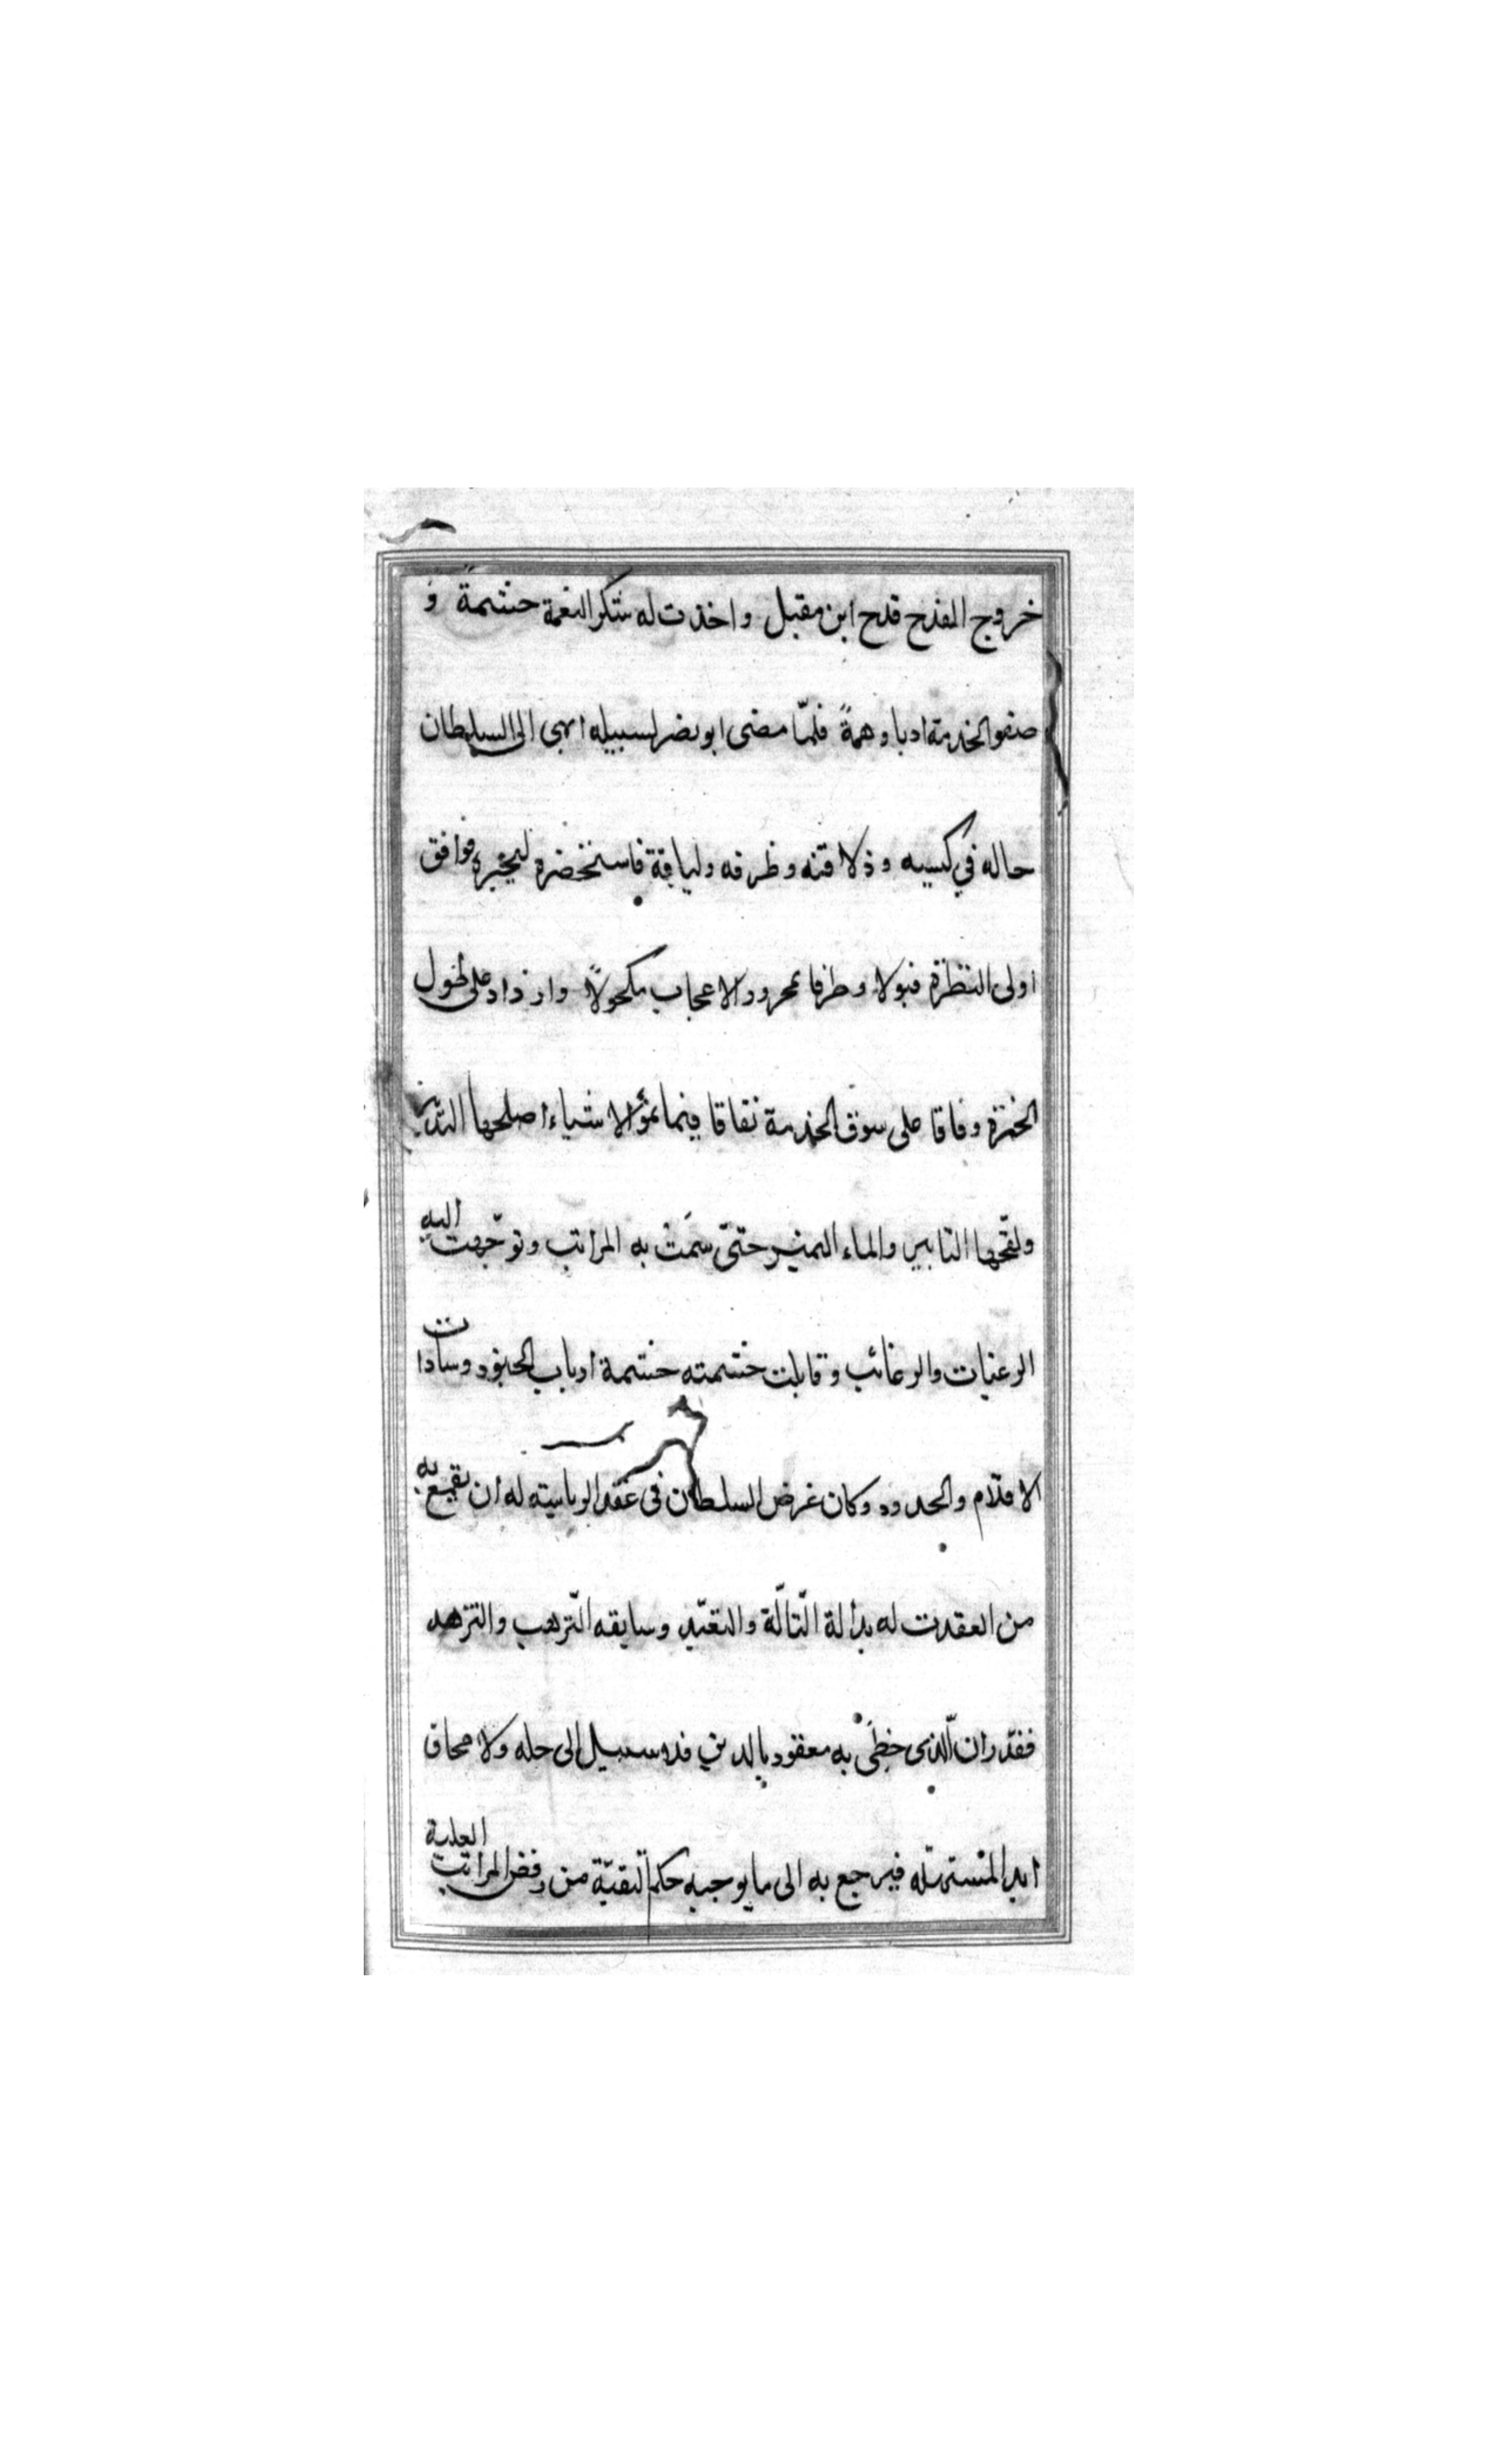 خروج المقدح قدح ابن مقبل واخذت له شكر النعمة حشمةً و
صفو الخدمة ادبا وهمةً فلمّا مضى ابو نضر لسبيله انهى الى السلطان
حاله في كيسه وذلاقته وظرفه ولياقة فاستحضره ليخبره فوافق
اولى النظرة قبولا وطرفا بمرود الاعجاب مكحولاً وازداد على طول
الخبرة وفاقا على سوق الخدمة نفاقا فيما نموّ الاشياء اصلحها التدبير
ولقّحها التابير والماء النمير حتّى سَمَتْ به المراتب وتوّجهت اليه
الرغبات والرغائب وقابلت حشمته حشمة ارباب الجنود وسادات
الاقلام والحدود وكان غرض السلطان فى عقد الرياسيته له ان يقمع به
من العقدت له بدالة التّالّة والتعبّد وسابقه التّرهب والتزهد
فقدّر ان الّذى حظِىَ به معقود بالدين فلا سبيل الى حله ولا محاق
ابدا لمستهلّه فيرجع به الى ما يوجبه حكم التقيّة من رفض المراتب العلية